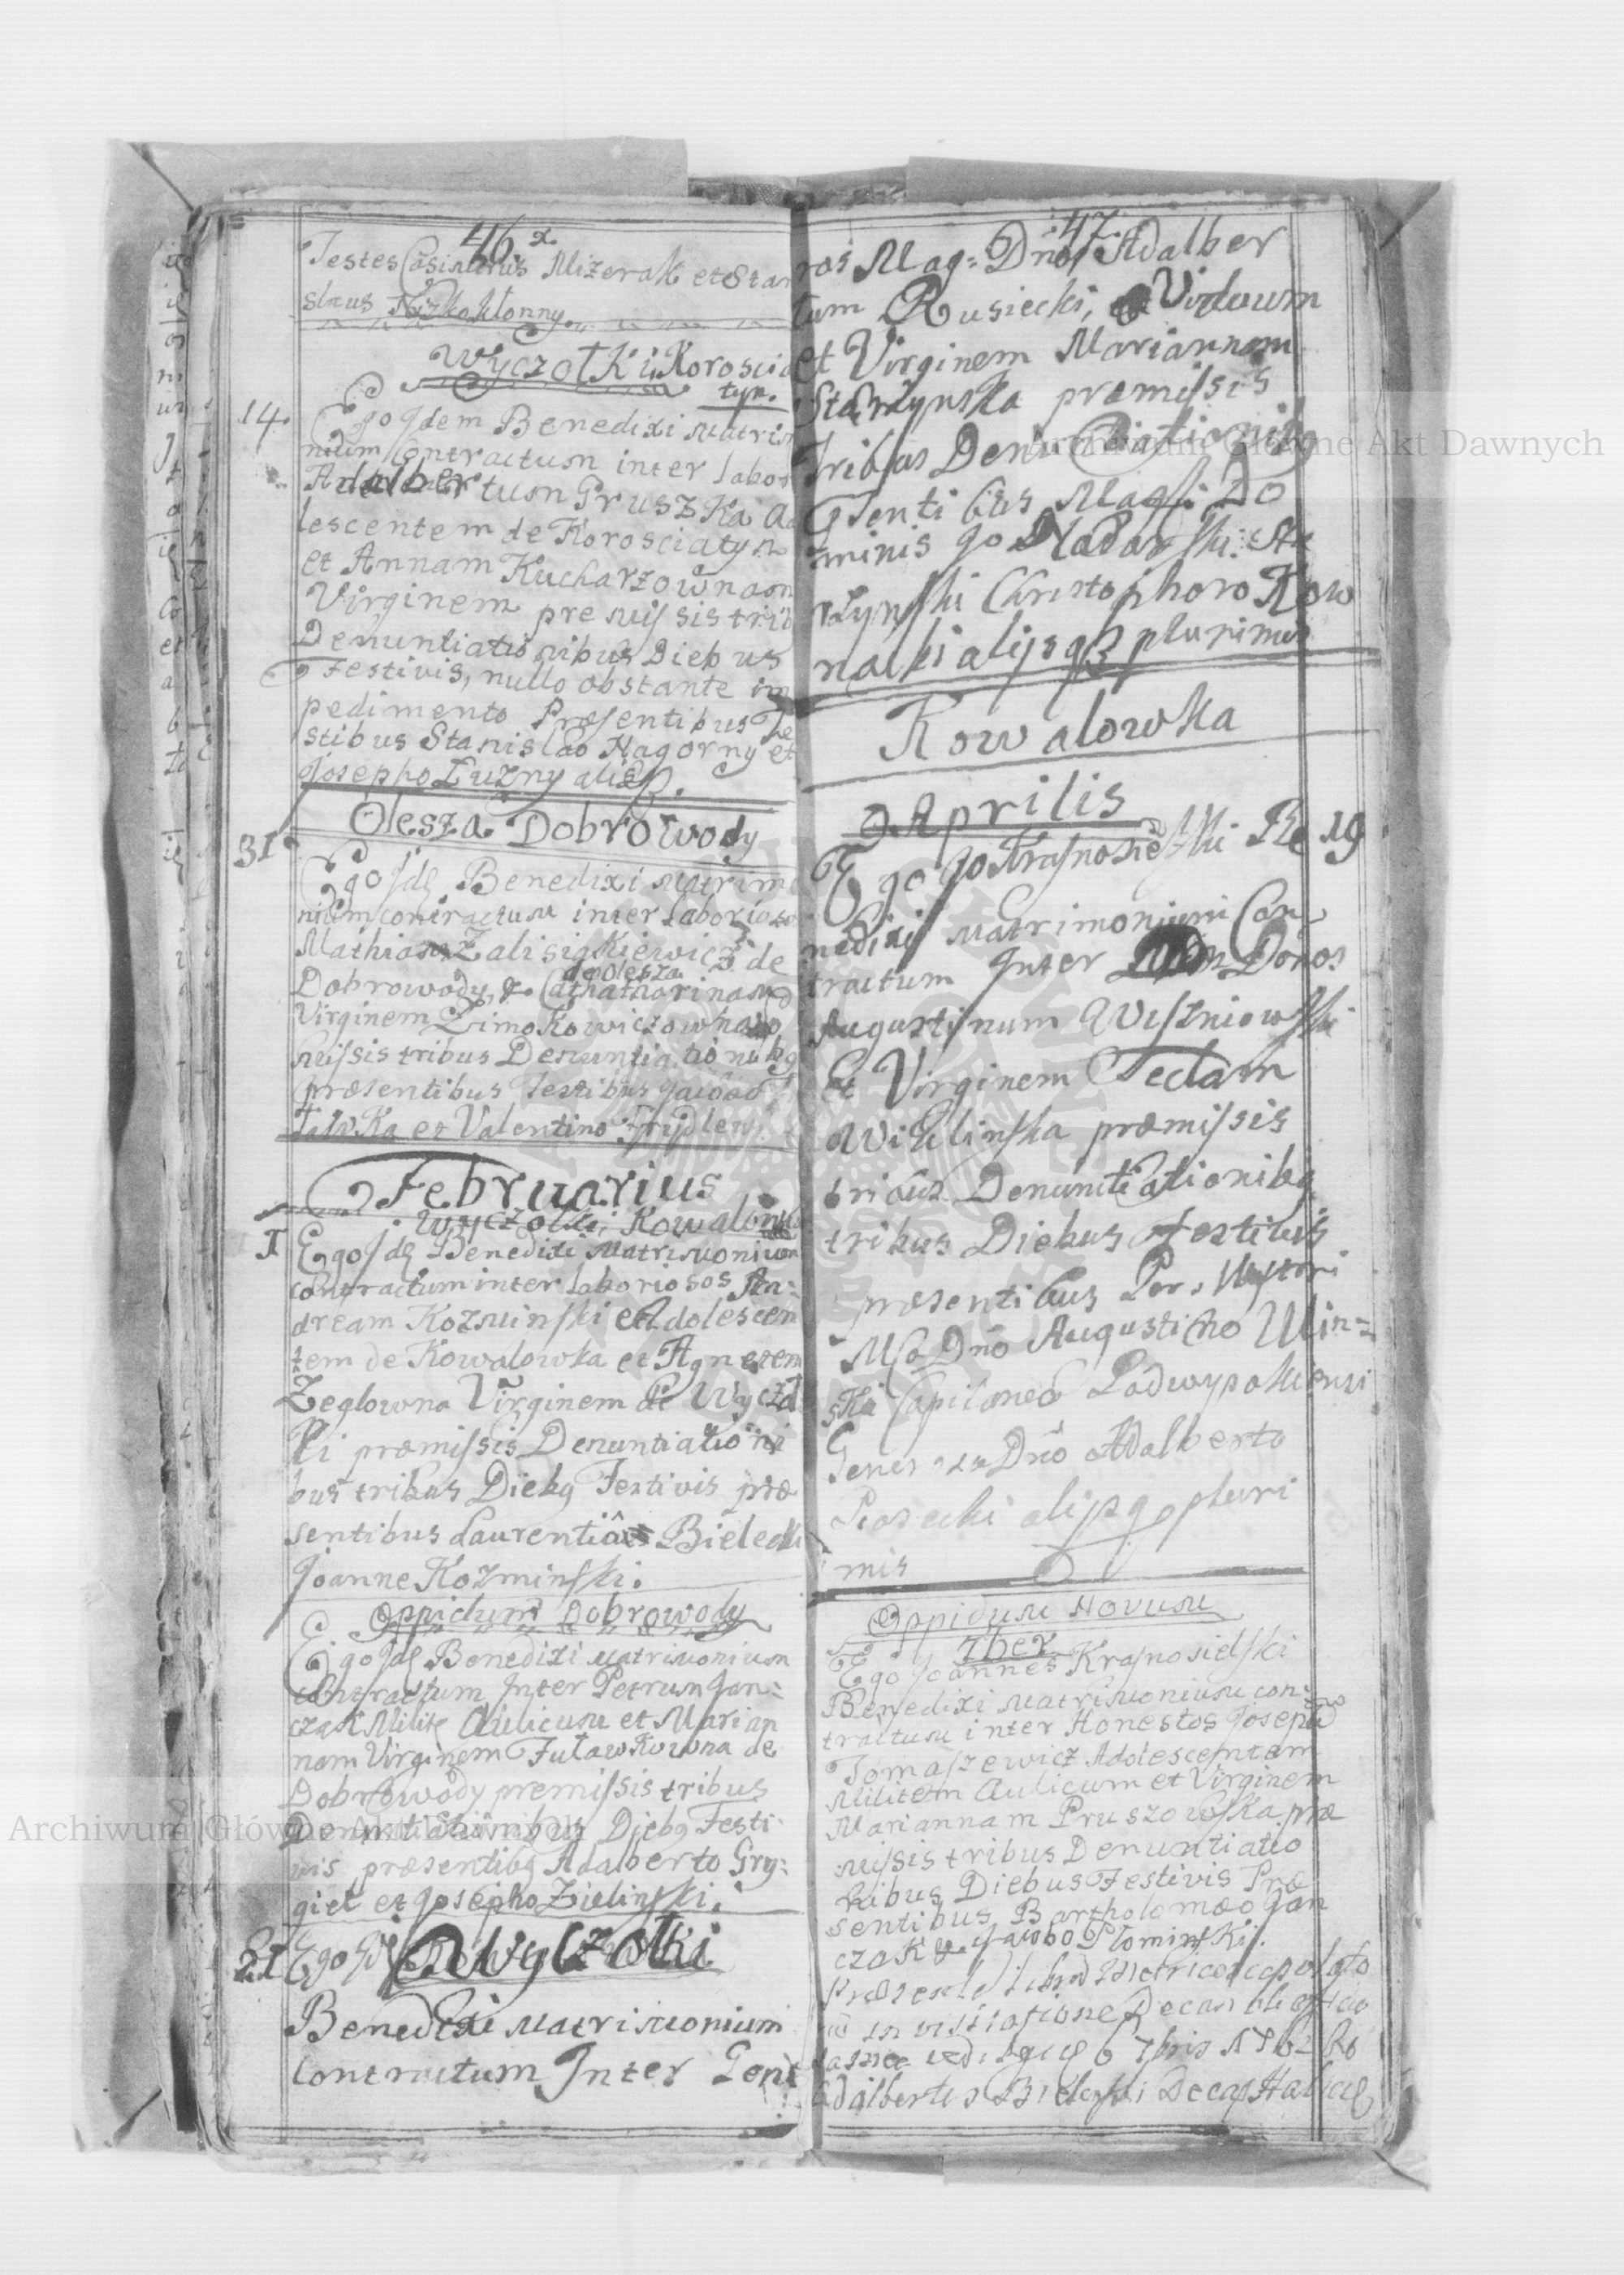 46
Testes Casimirus Mizerak et Stani
slaus
Wyczołki, Koroscia
tyn.
14. Ego Jdem Benedixi Matrim
nium Contractum inter Labor
Adalbertum Gruszka Ado
lescentem de Korosciatyn
et Annam Kucharzownam
Virginem premissis trib
Denuntiationibus Diebus
Festivis, nullo obstante im
pedimento Præsentibus Te
stibus Stanislao Nagorny et
Josepho Luzny alijsq.
Olesza. Dobrowody
31. Ego Jdē Benedixi Matrimo
nium contractum inter Laborioso
Mathiam de
Dobrowody, & Catharinam
de Olesza
Virginem Zimokowiczowna
missis tribus Denuntiationibq
præsentibus Testibus Jacobo
et Valentino
Februarius
Wyczołki, Kowalowka
1 Ego Jdē Benedixi Matrimonium
contractum inter Laboriosos An=
dream Kozminski Adolescen
tem de Kowalowka et Agnetem
Zeglowna Virginem de Wyczoł
ki præmissis Denuntiationi
bus tribus Diebq Festivis præ
sentibus Laurentio Bielecki
Joanne Kozminski.
Oppidum Dobrowody
Ego Jdē Benedixi Matrimonium
contractum Inter Petrum Jan=
czak Militē Aulicum et Marian
nam Virginem Futawkowna de
Dobrowody premissis tribus
Denuntiationibus Diebq Festi
vis præsentibq Adalberto Gry=
giel et Josepho Zielinski.
21 Ego Jdē Wyczołki
Benedixi Matrimonium
Contractum Inter Gene
47.
ros Mag: Dnos Adalber
tum Rusiecki, Viduum
et Virginem Mariannam
præmissis
Tribus Denunciationibq
Præsentibus Magfi Do
minis
Christophoro Kow
nacki alijsqȝ plurimis
Kowalowka
Aprilis
Ego Jo Krasnosielski Be 19
nedixi Matrimonium Con
tractum Inter Donos
Augustinum Wiszniowski
et Virginem Teclam
Wiklinska præmissis
tribus Denuntiationibq
tribus Diebus Festivis
præsentibus
Dnō Augustino Ulin=
ski Capitaneo
Dnō Adalberto
alijsq pluri
mis
Oppidum Novum
7ber
Ego Joannes Krasnosielski
Benedixi Matrimonium con=
tractum inter Honestos Joseph
Tomaszewicz Adolescentem
Militem Aulicum et Virginem
Mariannam Pruszowska præ
missis tribus Denuntiatio
nibus Diebus Festivis Præ
sentibus Bartholomæo Jan
czak & Jacobo Płominski.
in visitatione Decanali
6 7bris 1762
Adalbertus Bielaski Decan
Archiwum Główne Akt Dawnych
Archiwum Główne Akt Dawnych